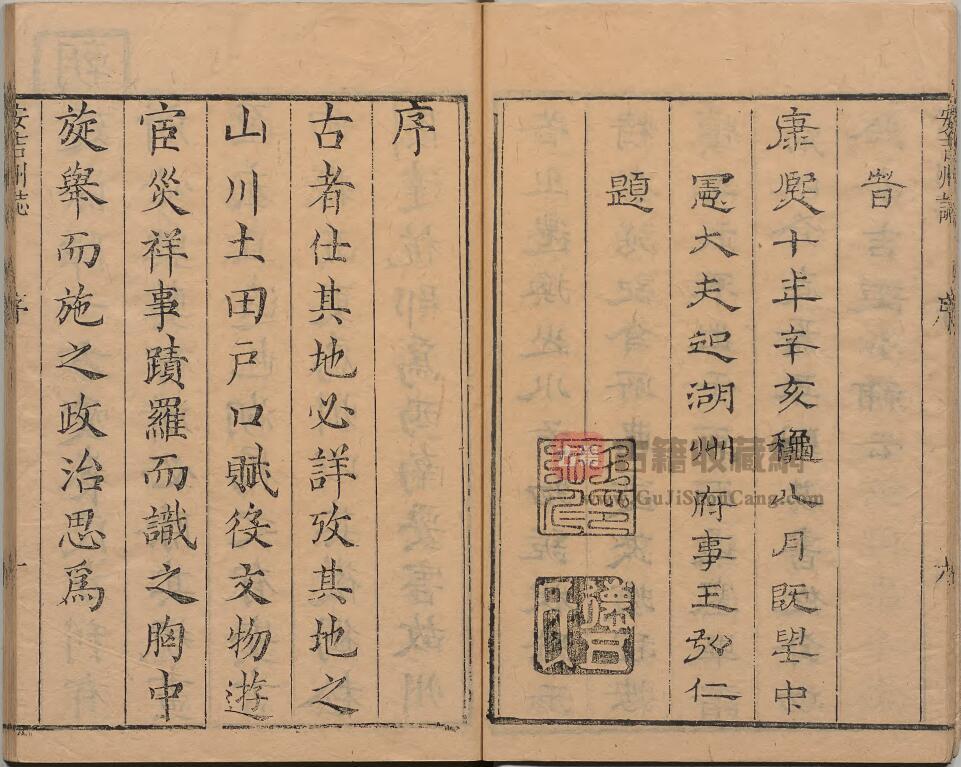 安吉州誌
序
九
時
康熙十年辛亥龝八月既朢中
憲大夫知湖州府事王
仁
題
序
古者仕其地必詳攷其地之
山川土田戶口賦役文物遊
宦災祥事蹟羅而識之胸中
旋舉而施之政治思爲
安吉州誌
序
一
古籍收藏網
www.GuJiShouCang.com